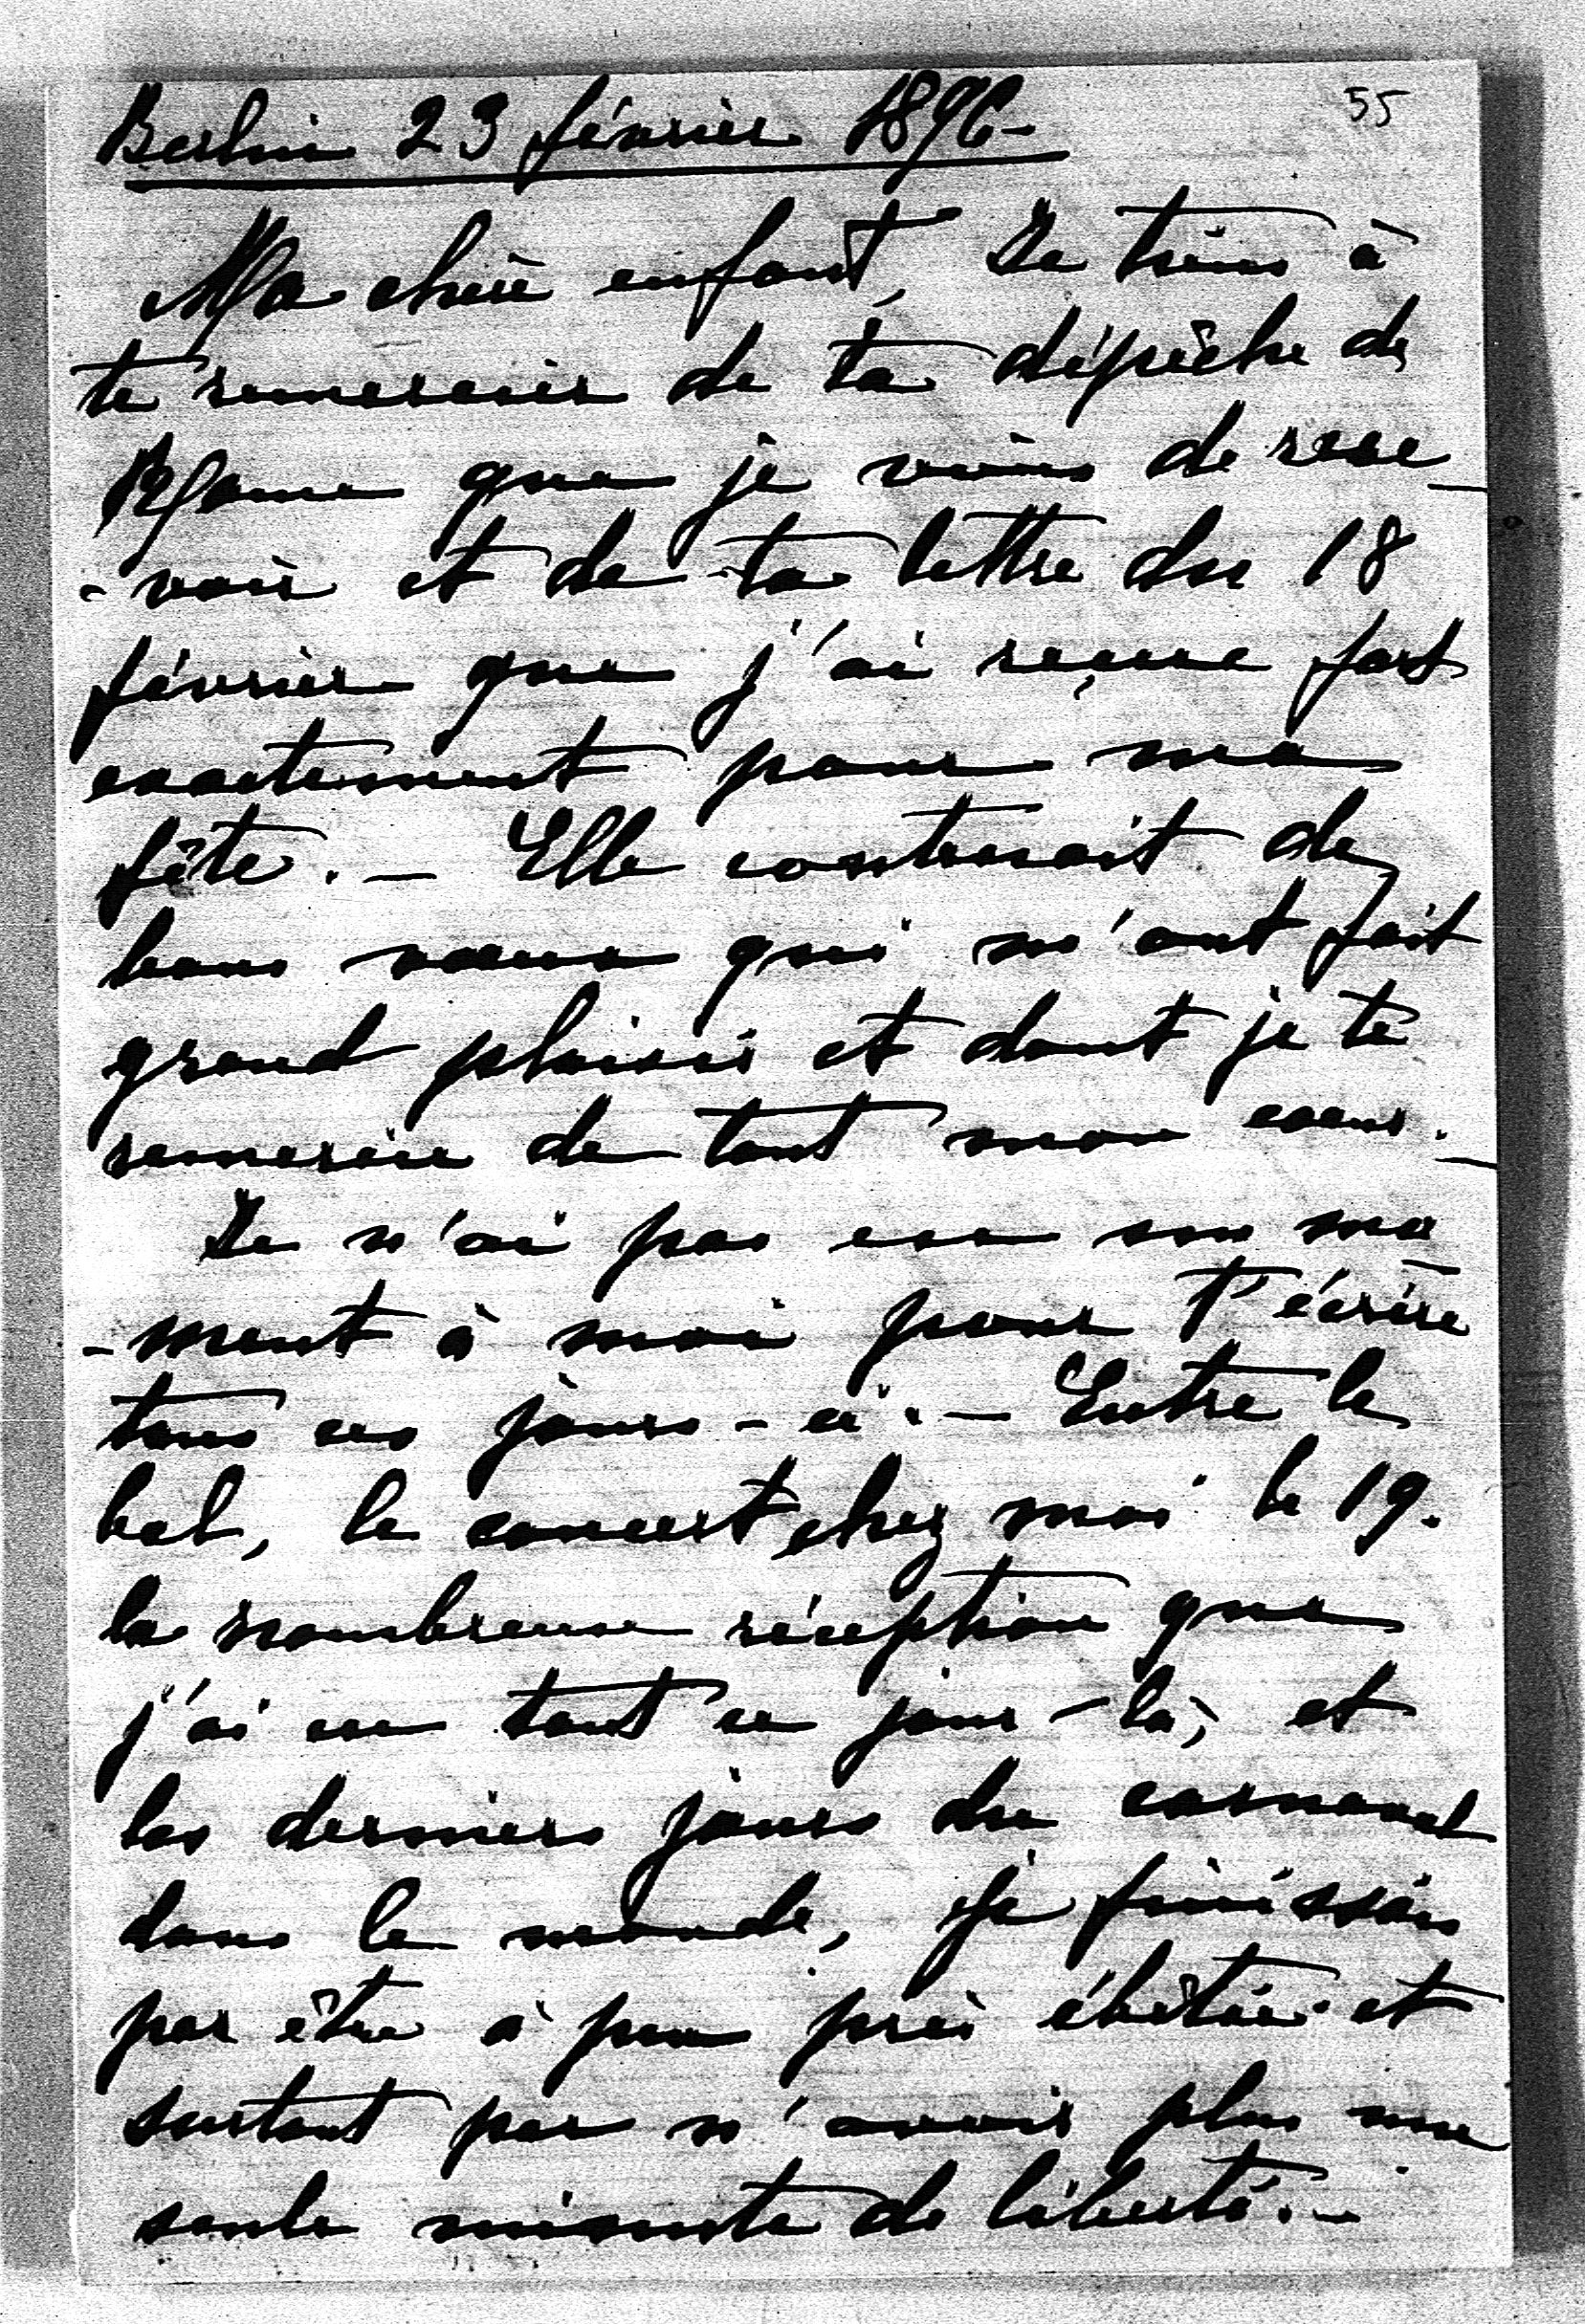 55
Berlin 23 février 1896 -
Ma chère enfant, Je tiens à
te remercier de ta dépêche de
Rome que je viens de rece-
-voir et de ta lettre du 18
février que j'ai reçue fort
exactement pour ma
fête. - Elle contenait de
bons vœux qui m'ont fait
grand plaisir et dont je te
remercie de tout mon cœur. -
Je n'ai pas eu un mo-
-ment à moi pour t'écrire
tous ces jours-ci. - Entre le
bal, le concert chez moi le 19.
la nombreuse réception que
j'ai eu tout ce jour-là, et
les derniers jours du carnaval
dans le monde, je finissais
par être à peu près éreintée et
surtout par n'avoir plus une
seule minute de liberté. -